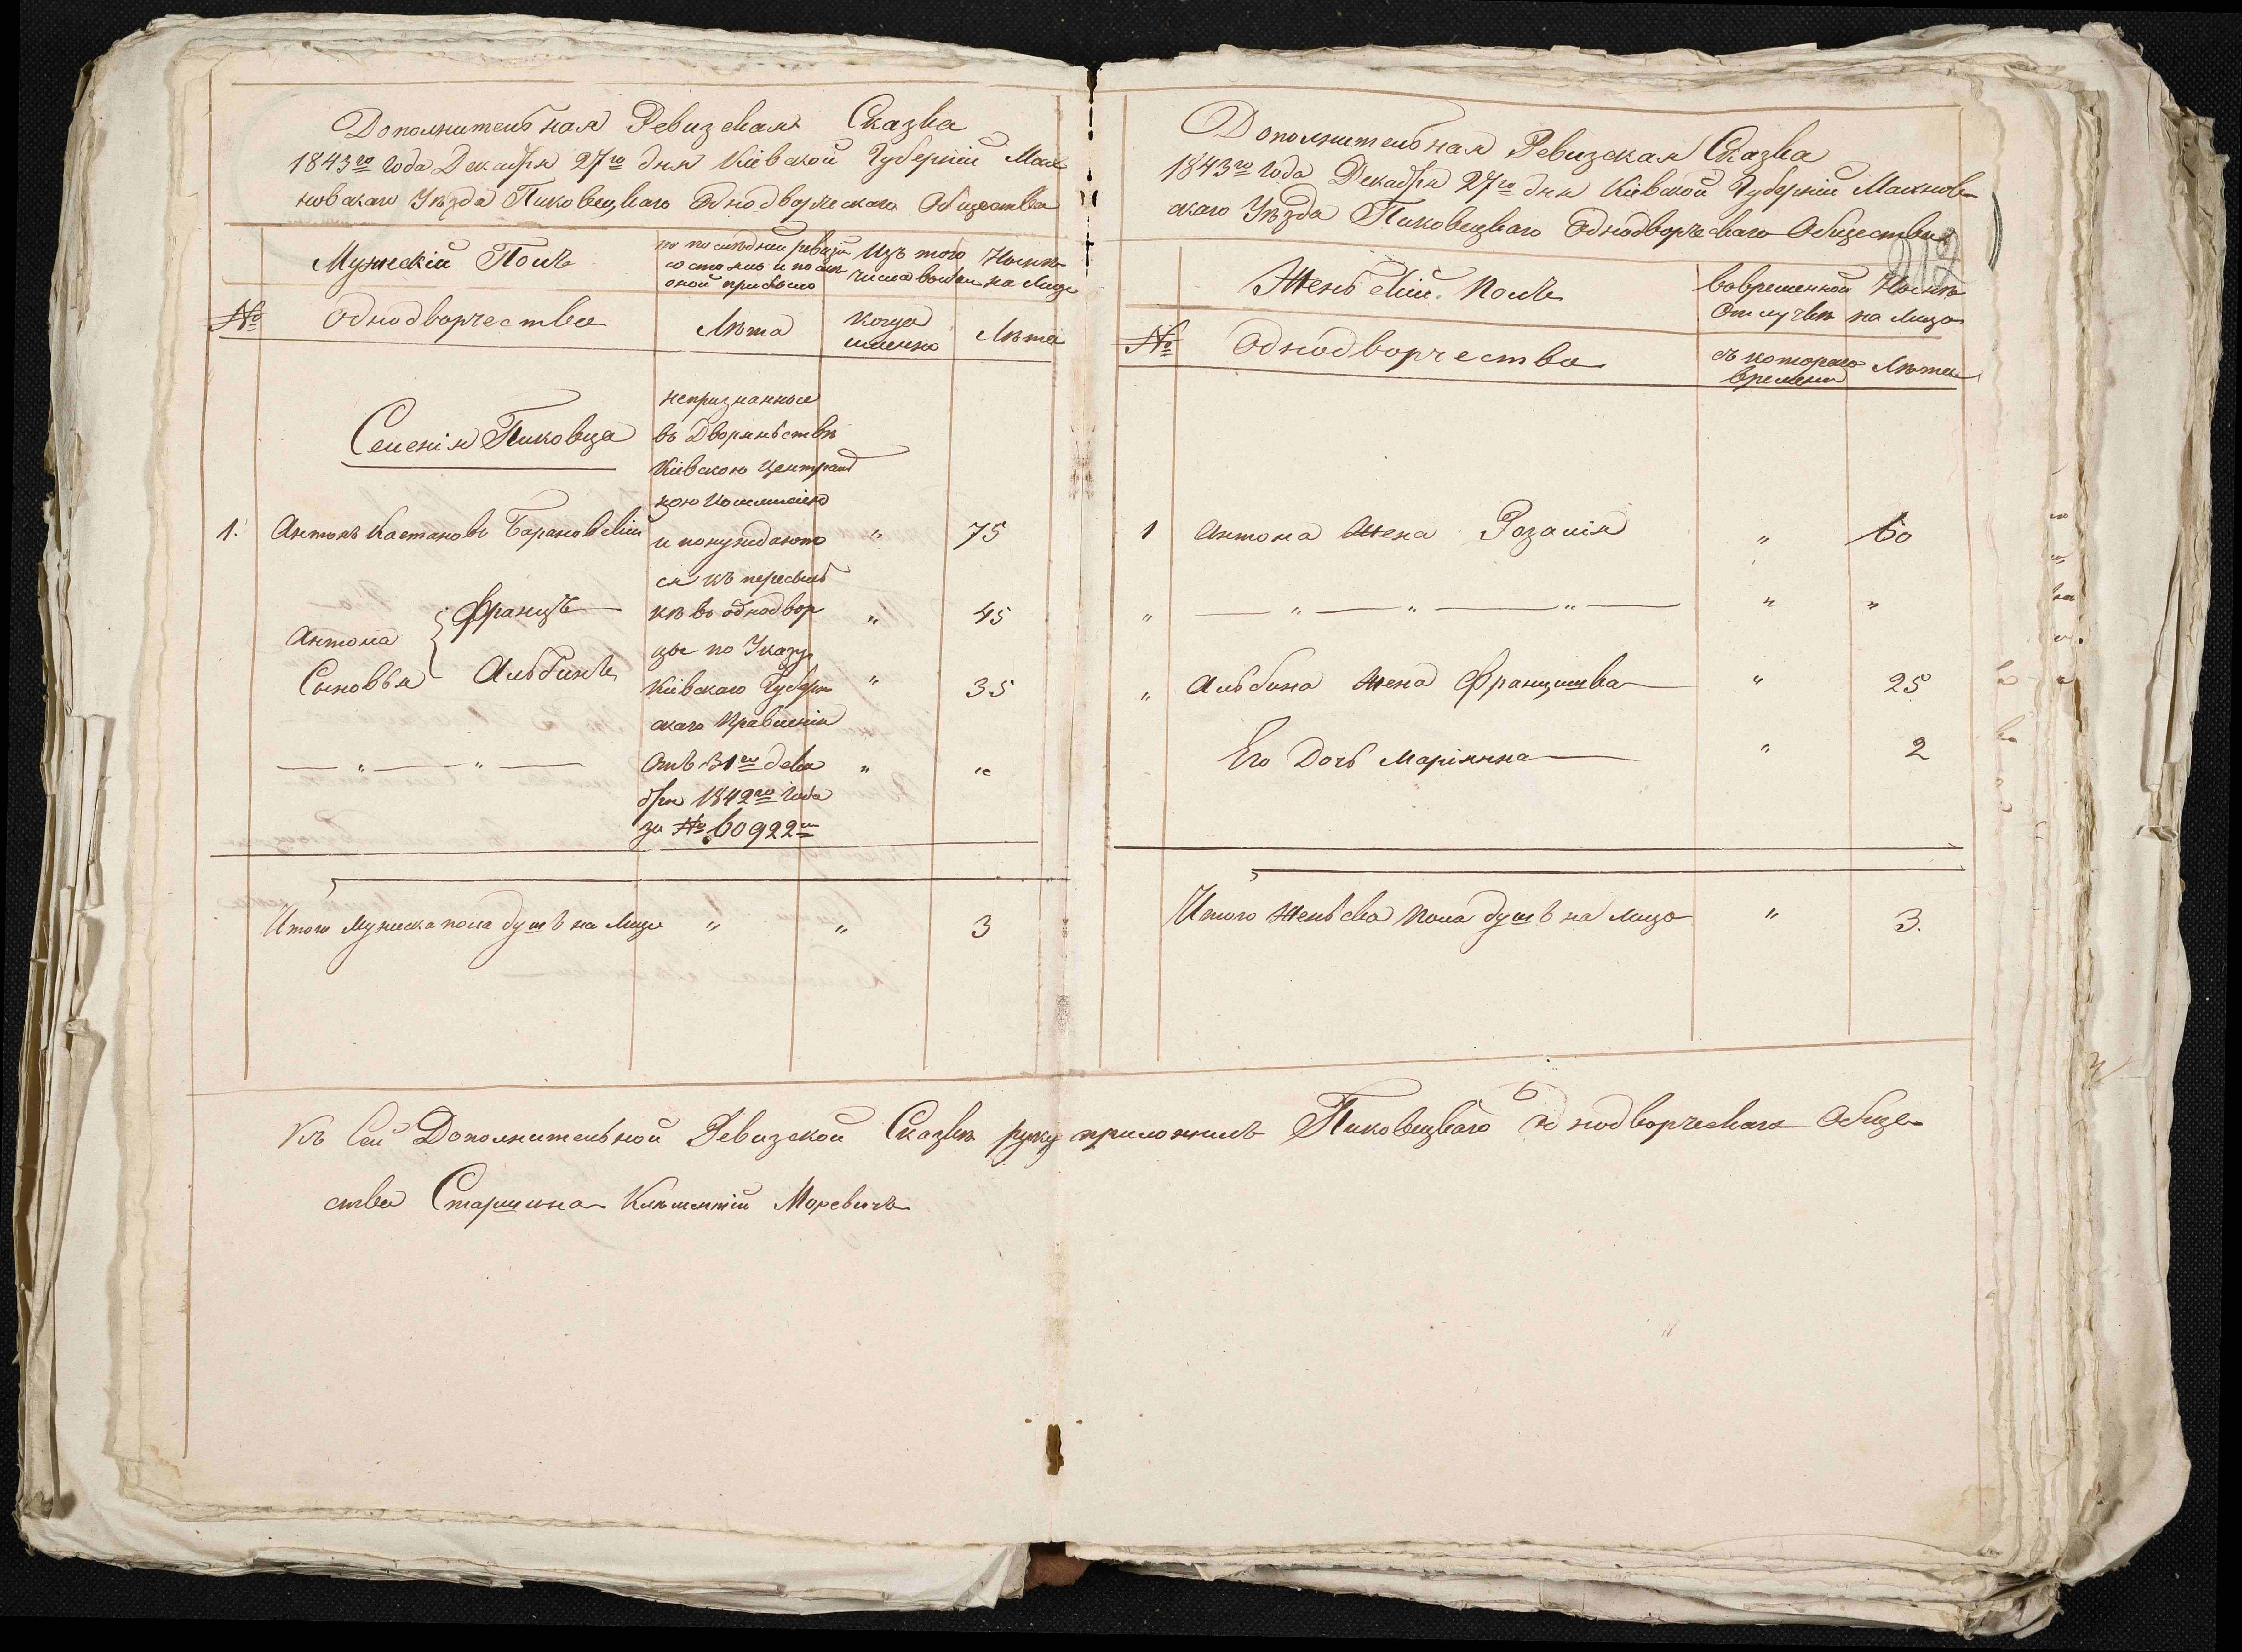 Дополнительная Ревизская Сказка
1843го Года Декабря 27го дня Кіевской Губерніи Мах
новскаго Уѣзда Пиковецкаго Однодворческаго Общества
Мужескій Полъ
по послѣдней ревизіи
состояло и послѣ
оной прибыло
Изъ того
числа выбыло
Нынѣ
на лицо
№
Однодворчества
Лѣта
когда
именно
Лѣта
Селенія Пиковца
непризнанные
въ Дворянствѣ
Кіевскою Централь
ною Коммисіею
и понуждают
ся къ перечис
кѣ въ однодвор
цы по Указу
Кіевскаго Губерн
скаго Правленія
Отъ 31го дека
бря 1842го Года
за № 60922м
1. Антонъ Каетановъ Барановскій " 75
Антона
Сыновья
Францъ " 45
Альбинъ " 35
— " — " — " "
Итого Мужеска пола душъ на Лицо " " 3
Дополнительная Ревизская Сказка
1843го Года Декабря 27го дня Кіевской Губерніи Махнов-
скаго Уѣзда Пиковецкаго Однодворческаго Общества
Женскій Полъ
Вовременной
Отлучкѣ
Нынѣ
на лицо
№
Однодворчества
съ котораго
времени
Лѣта
1 Антона Жена Розалія " 60
" — " — " — " — " "
" Альбина Жена Францишка " 25
Его Дочь Маріянна " 2
Итого Женска Пола душъ на лицо " 3.
Къ Сей Дополнительной Ревизской Сказкѣ руку приложилъ Пиковецкаго Однодворческаго Обще-
ства Старшина Климентій Моревичъ